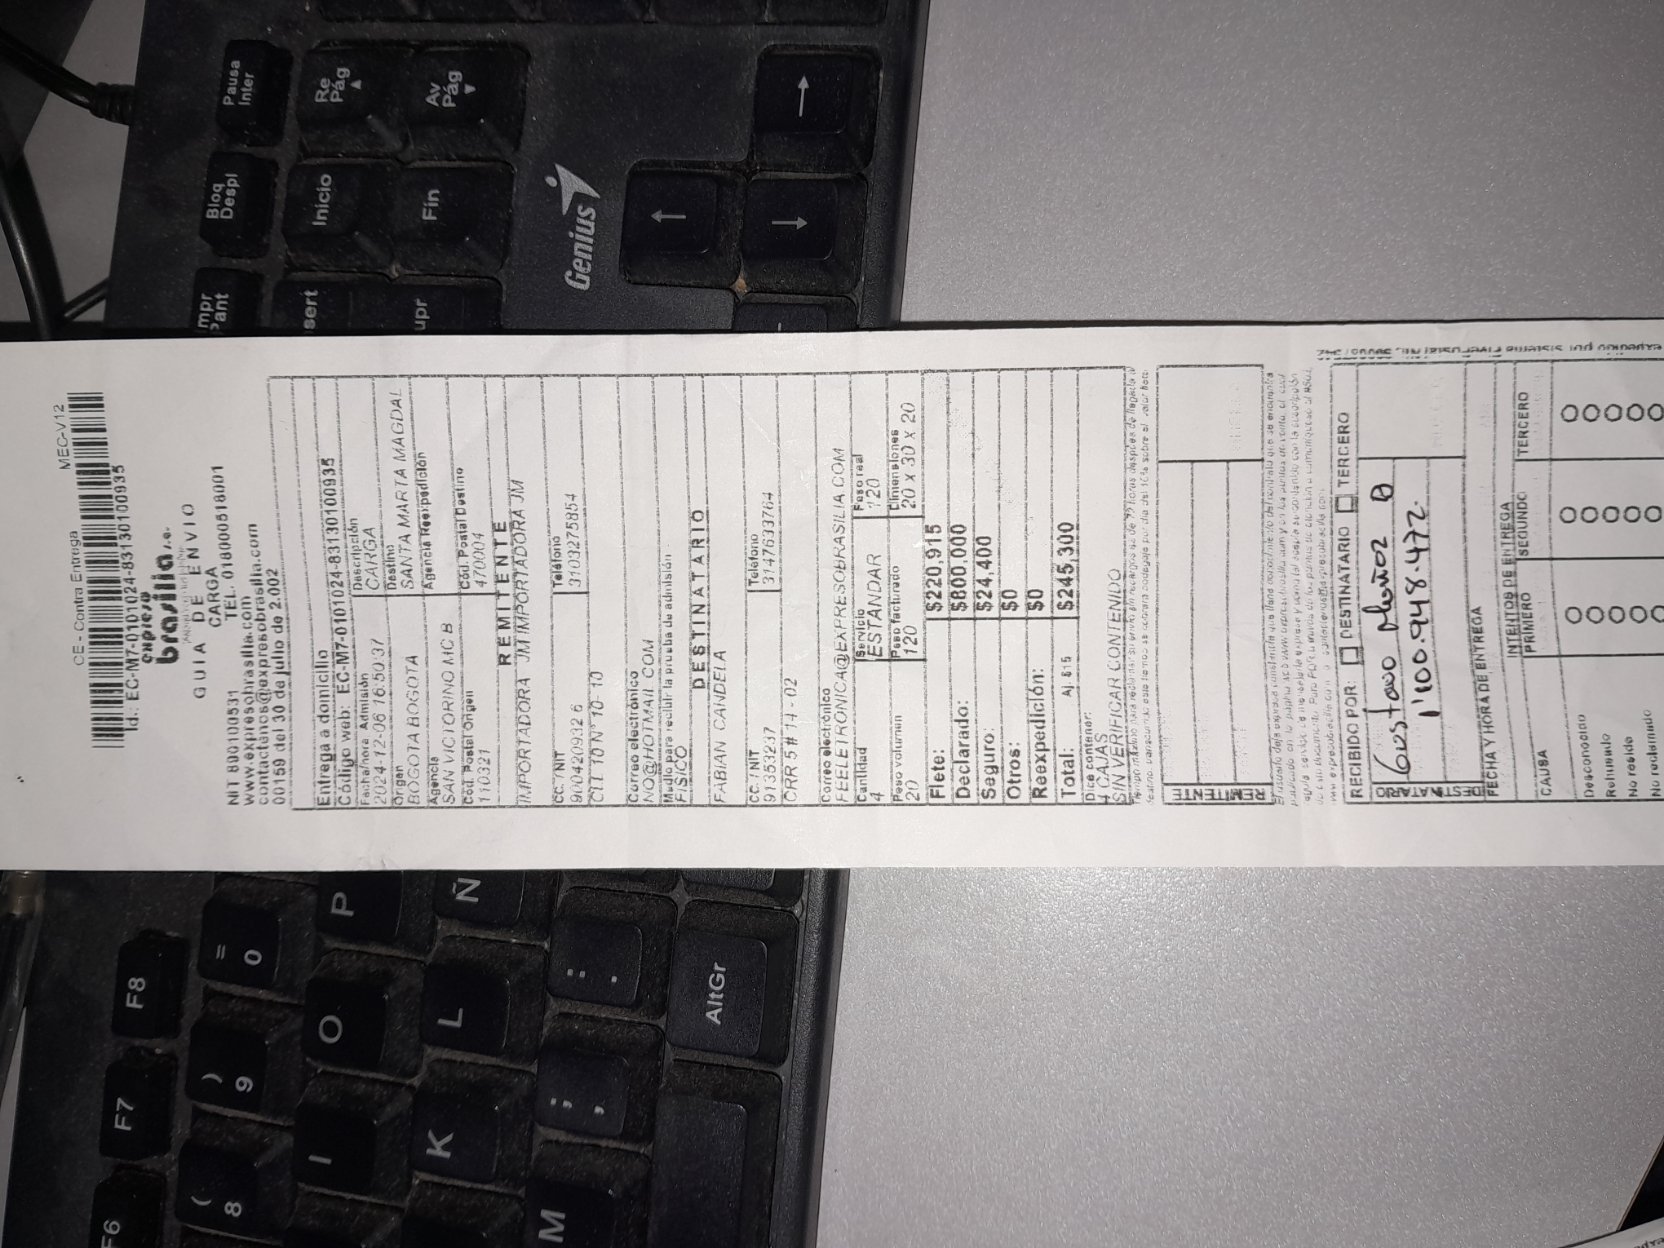 CE - Contra Entrega MEC-V12
Id.: EC-M7-0101024-83130100935
expreso
brasilia s.a.
GUIA DE ENVIO
CARGA
TEL. 018000518001
NIT 890100531
www.expresobrasilia.com
contactenos@expresobrasilia.com
00159 del 30 de julio de 2.002
Entrega a domicilio
Código web: EC-M7-0101024-83130100935
Fecha/hora Admisión Descripción
2024-12-06 16:50:37 CARGA
Origen Destino
BOGOTA BOGOTA SANTA MARTA MAGDAL
Agencia Agencia Reexpedición
SAN VICTORINO MC B
Cód. Postal Origen Cód. Postal Destino
110321 470004
REMITENTE
IMPORTADORA JM IMPORTADORA JM
CC. / NIT Teléfono
900420932 6 3103275854
CLL 10 N 10- 10
Correo electrónico
NO@HOTMAIL.COM
Medio para recibir la prueba de admisión
FISICO
DESTINATARIO
FABIAN CANDELA
CC. / NIT Teléfono
91353237 3147633764
CRR 5 # 14 - 02
Correo electrónico
FEELETRONICA@EXPRESOBRASILIA.COM
Cantidad Servicio Peso real
4 ESTANDAR 120
Peso volumen Peso facturado Dimensiones
20 120 20 x 30 x 20
Flete: $220,915
Declarado: $800,000
Seguro: $24,400
Otros: $0
Reexpedición: $0
Total: Aj. $15 $245,300
Dice contener:
4 CAJAS
SIN VERIFICAR CONTENIDO
REMITENTE
RECIBIDO POR: DESTINATARIO TERCERO
Gustavo Muñoz
1'100.948.472.
DESTINATARIO
FECHA Y HORA DE ENTREGA
INTENTOS DE ENTREGA
CAUSA PRIMERO SEGUNDO TERCERO
Desconocido
Rehusado
No reside
No reclamado
Pausa
Inter
Re
Pág
Av
Pág
Bloq
Despl
Inicio
Fin
Impr
Pant
sert
upr
Genius
F8
F7
F6
=
0
)
9
(
8
P
O
I
Ñ
L
K
:
.
;
,
M
AltGr